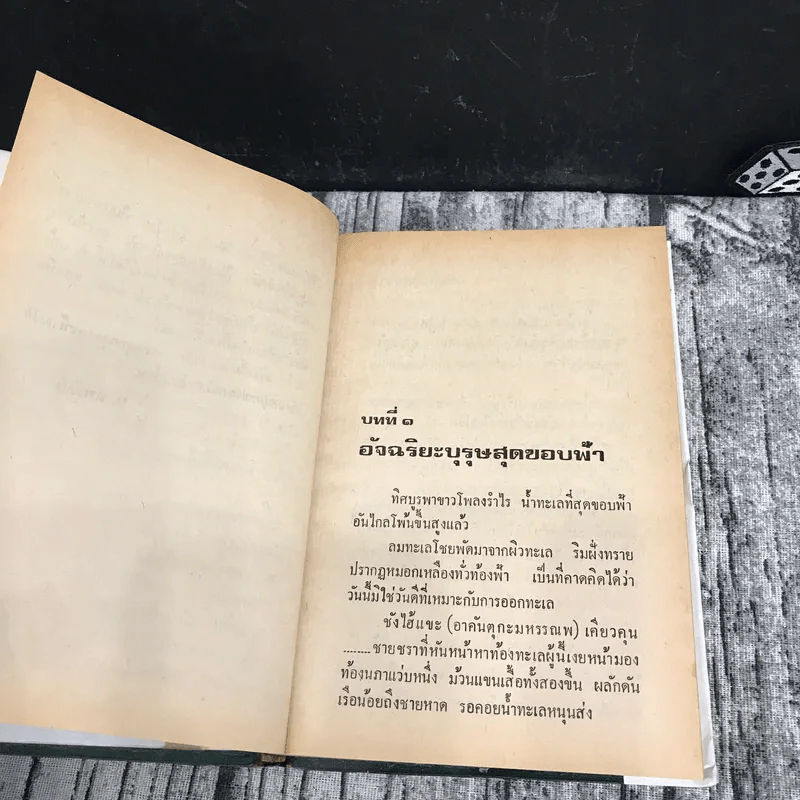 บทที่ ๑
อัจฉริยะบุรุษสุดขอบฟ้า
ทิศบูรพาขาวโพลงรำไร น้ำทะเลที่สุดขอบฟ้า
อันไกลโพ้นขึ้นสูงแล้ว
ลมทะเลโชยพัดมาจากผิวทะเล ริมฝั่งทราย
ปรากฏหมอกเหลืองทั่วท้องฟ้า เป็นที่คาดคิดได้ว่า
วันนี้มิใช่วันดีที่เหมาะกับการออกทะเล
ชังไฮ้แขะ (อาคันตุกะมหรรณพ) เคียวคุน
........ชายชราที่หันหน้าหาท้องทะเลผู้นี้เงยหน้ามอง
ท้องนภาแว่บหนึ่ง ม้วนแขนเสื้อทั้งสองขึ้น ผลักดัน
เรือน้อยถึงชายหาด รอคอยน้ำทะเลหนุนส่ง